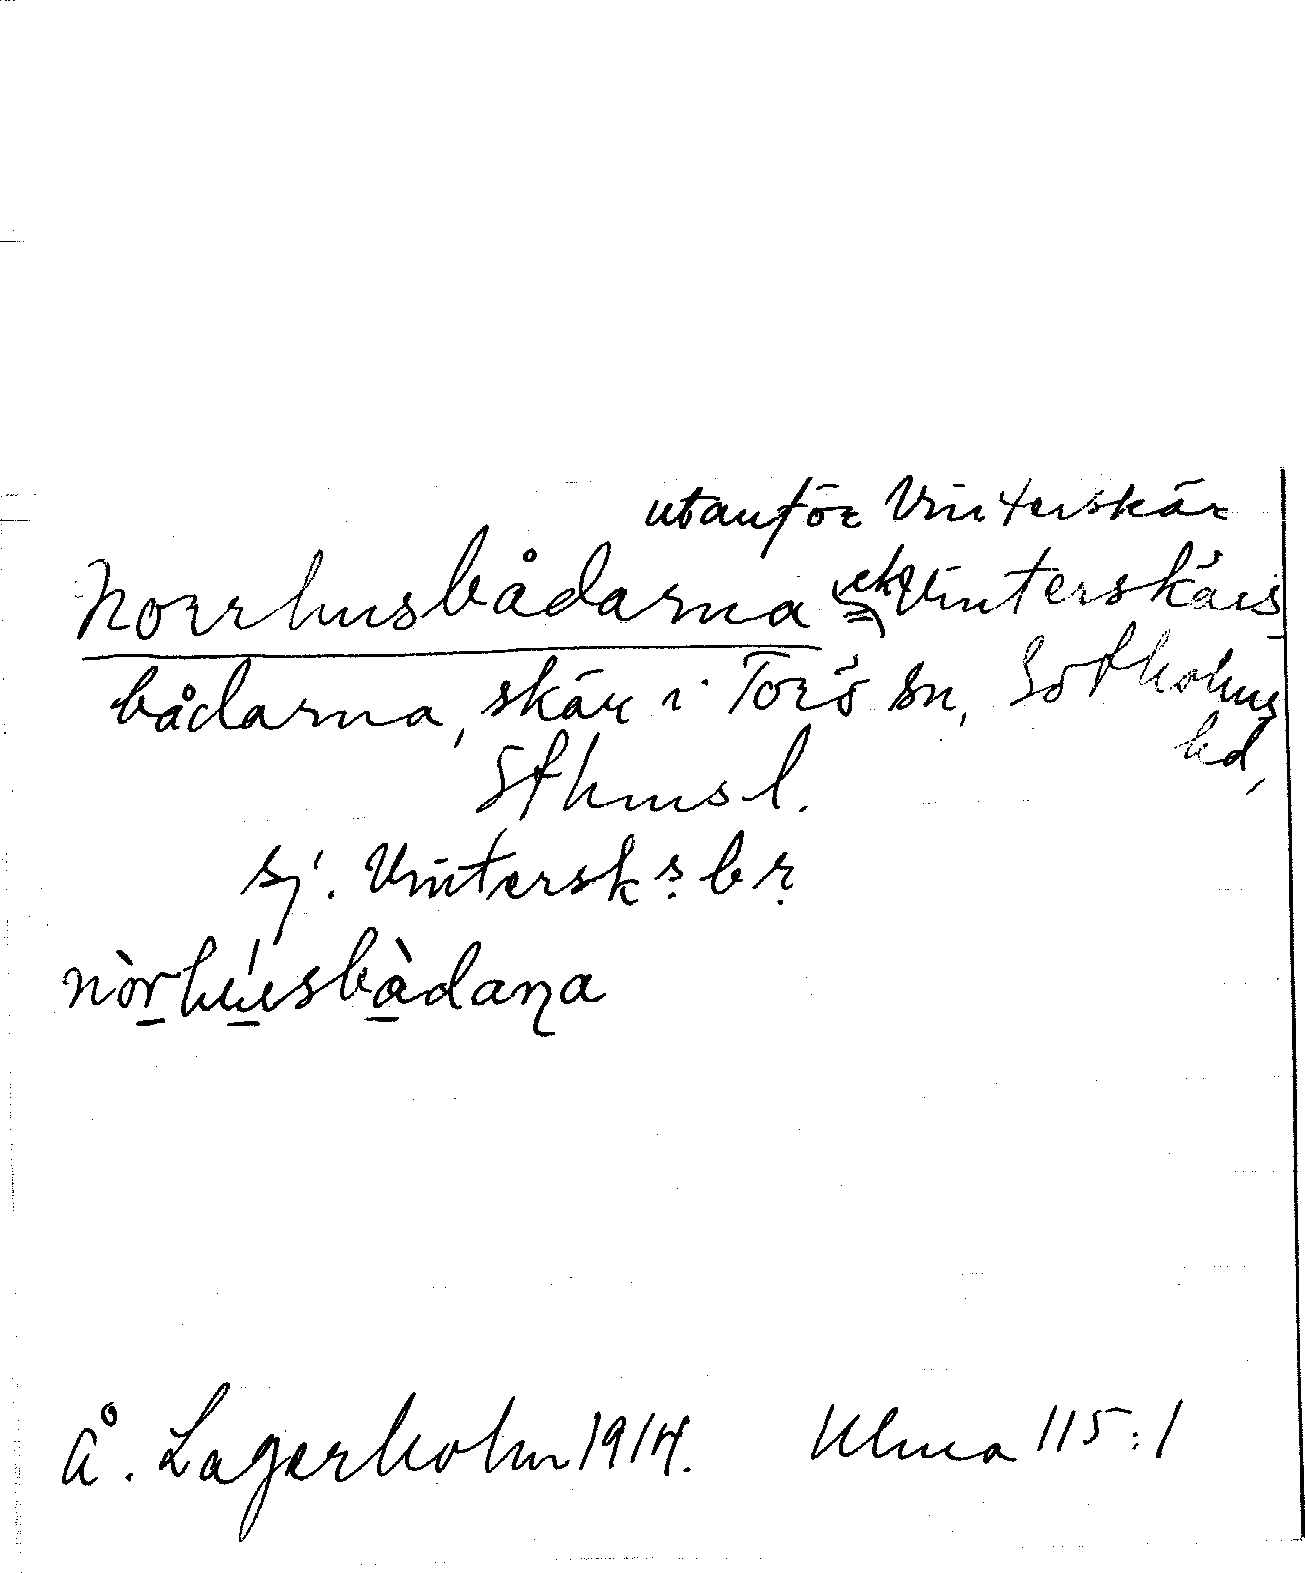 utanför Vinterskär
Norrhusbådarna el. Vinterskärs
bådarna, skär i Torö sn, Sotholms
hd,
Sthms l.
sj. Vintersk s. b r.
nòrhúsbàdaṇa
Å. Lagerholm 1914. Ulma 115:1